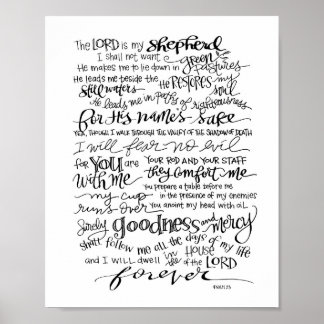 The LORD is my Shepherd
I shall not want.
He makes me to lie down in green pastures
He leads me beside the still waters
He RESTORES my soul
He leads me in Paths of righteousness
for His name's sake
YEA, THOUGH I WALK THROUGH THE VALLEY OF THE SHADOW OF DEATH
I will fear no evil
for YOU are with me
YOUR ROD AND YOUR STAFF
they comfort me
YOU PREPARE A TABLE BEFORE ME
IN THE PRESENCE OF MY ENEMIES
YOU ANOINT MY HEAD WITH OIL
my cup runs over
Surely goodness and mercy
shall follow me all the days of my life
and I will dwell in the House of the LORD
forever
PSALM 23